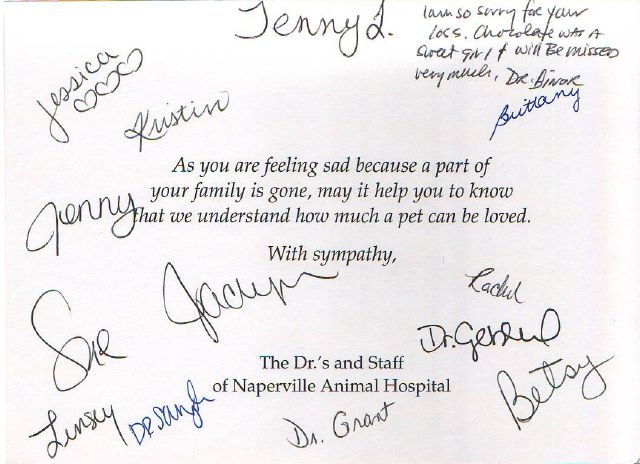 Jenny L.
I am so sorry for your
loss. Chocolate was a
sweet girl & will be missed
very much, Dr. Binor
Brittany
Jessica
Kristin
As you are feeling sad because a part of
your family is gone, may it help you to know
that we understand how much a pet can be loved.
Jenny
With sympathy,
Jaclyn
Rachel
Sue
Dr.
The Dr.'s and Staff
of Naperville Animal Hospital
Betsy
Linsey
Dr. Singh
Dr. Grant